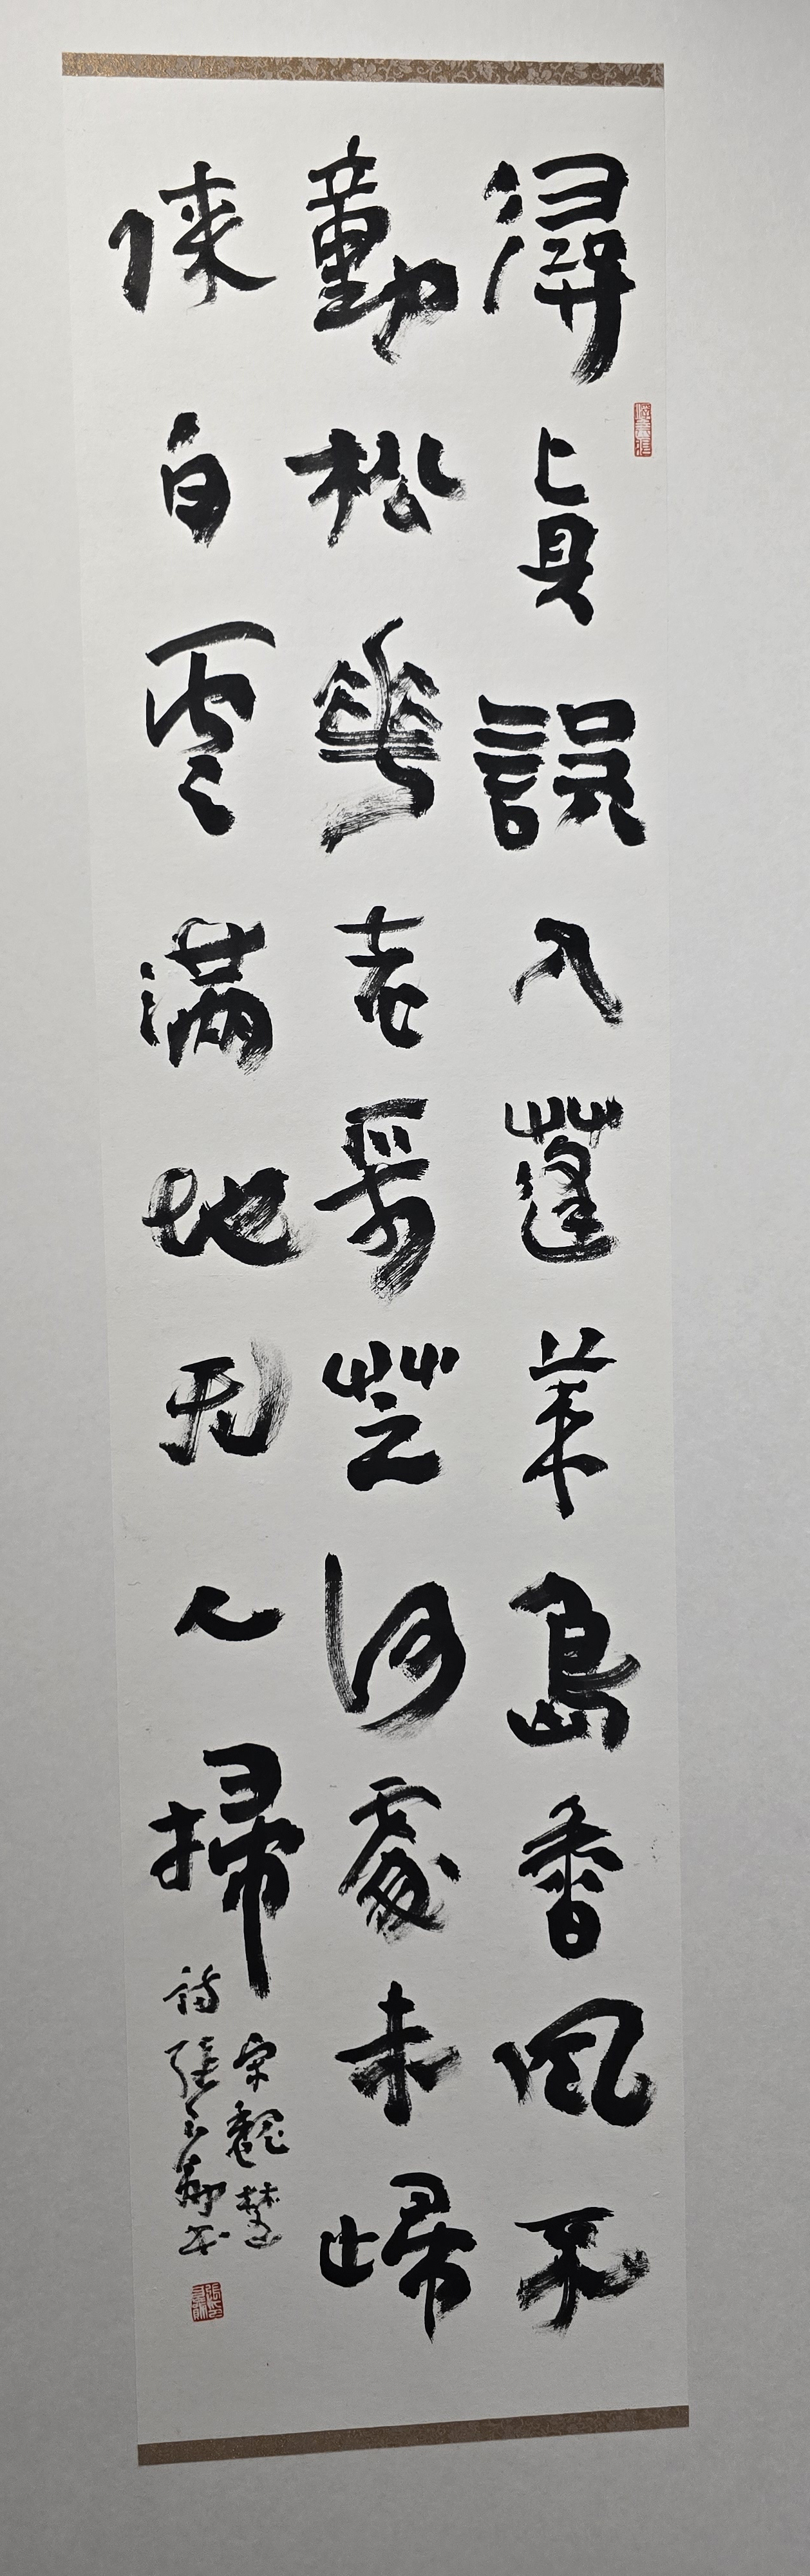 尋真誤入蓬萊島香風不
動松華老采芝何處未歸
徠白雲滿地无人掃
宋魏埜
詩張